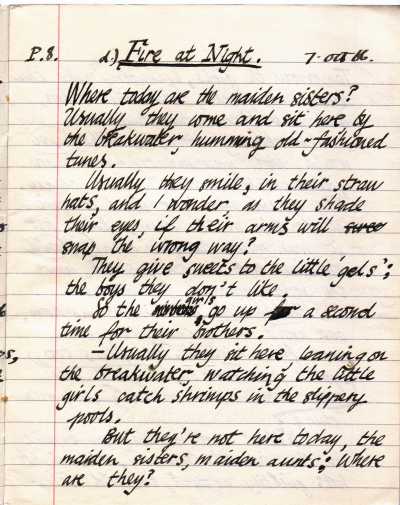 P.8. d.) Fire at Night. 7. Oct 66.
Where today are the maiden sisters?
Usually they come and sit here by
the breakwater, humming old-fashioned
tunes.
Usually they smile, in their straw
hats, and I wonder, as they shade
their eyes, if their arms will
snap the wrong way?
They give sweets to the little 'gels';
the boys they don't like.
So the girls go up a second
time for their brothers.
- Usually they sit here leaning on
the breakwater, watching the little
girls catch shrimps in the slippery
pools.
But they're not here today, the
maiden sisters, maiden aunts; Where
are they?